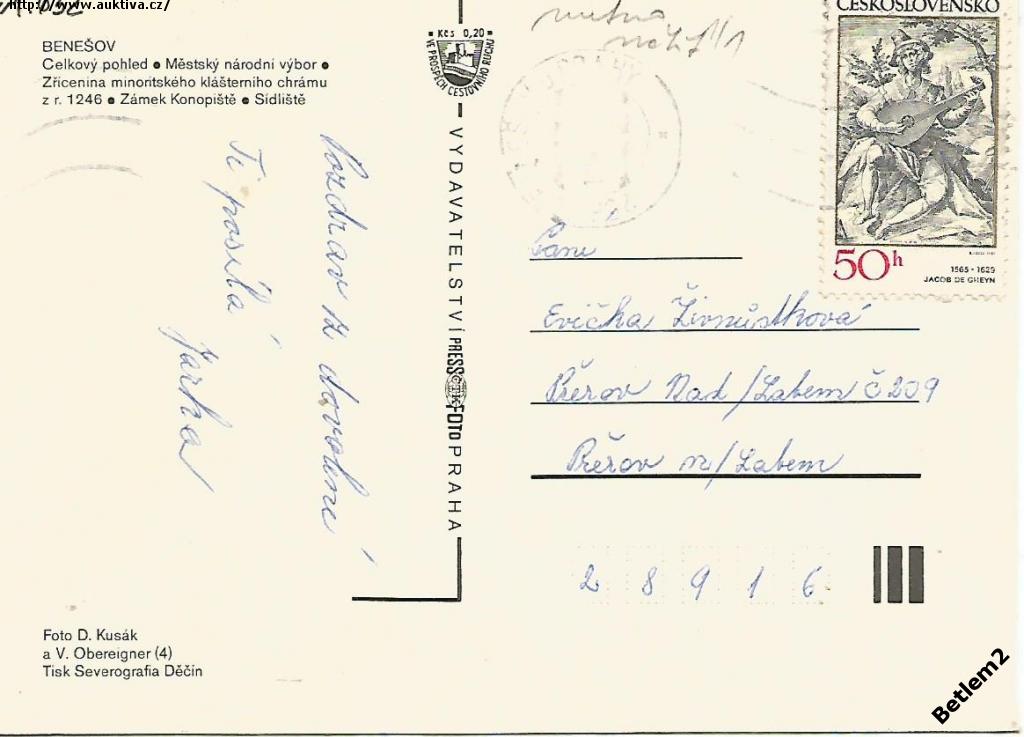 http://www.auktiva.cz/
BENEŠOV
Celkový pohled • Městský národní výbor •
Zřícenina minoritského klášterního chrámu
z r. 1246 • Zámek Konopiště • Sídliště
Pozdrav z dovolené
Ti posílá
Jarka
Foto D. Kusák
a V. Obereigner (4)
Tisk Severografia Děčín
Kčs 0,20
VE PROSPĚCH CESTOVNÍHO RUCHU
VYDAVATELSTVÍ PRESSFOTO PRAHA
ČESKOSLOVENSKO
50h
1565 - 1629
JACOB DE GHEYN
Evička Živnůstková
Přerov Nad/Labem č 209
Přerov n/Labem
28916
Betlem2